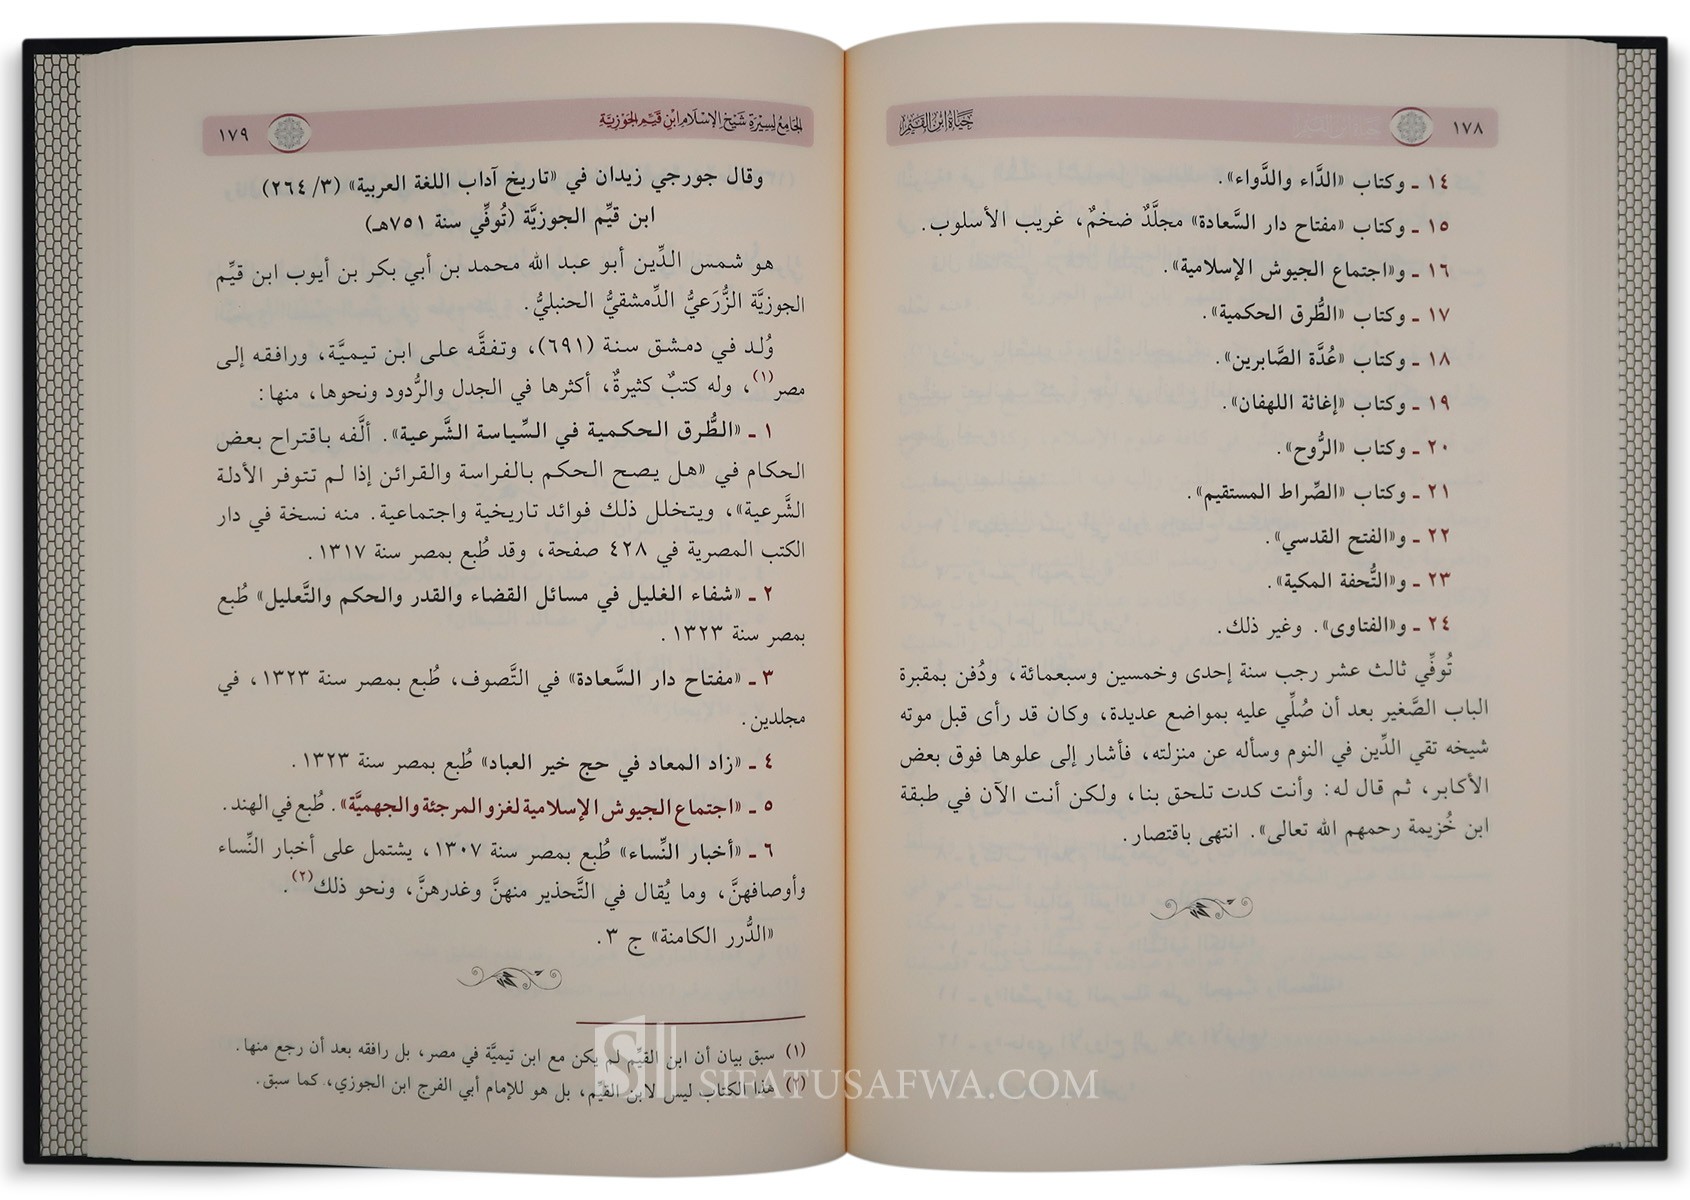 ١٧٨
حَيَاة ابْن القَيِّم
١٤ ـ وكتاب «الدَّاء والدَّواء».
١٥ ـ وكتاب «مفتاح دار السَّعادة» مجلَّدٌ ضخمٌ، غريب الأسلوب.
١٦ ـ و«اجتماع الجيوش الإسلامية».
١٧ ـ وكتاب «الطُّرق الحكمية».
١٨ ـ وكتاب «عُدَّة الصَّابرين».
١٩ ـ وكتاب «إغاثة اللهفان».
٢٠ ـ وكتاب «الرُّوح».
٢١ ـ وكتاب «الصِّراط المستقيم».
٢٢ ـ و«الفتح القدسي».
٢٣ ـ و«التُّحفة المكية».
٢٤ ـ و«الفتاوى». وغير ذلك.
تُوفِّي ثالث عشر رجب سنة إحدى وخمسين وسبعمائة، ودُفن بمقبرة
الباب الصَّغير بعد أن صُلِّي عليه بمواضع عديدة، وكان قد رأى قبل موته
شيخه تقي الدِّين في النوم وسأله عن منزلته، فأشار إلى علوها فوق بعض
الأكابر، ثم قال له: وأنت كدت تلحق بنا، ولكن أنت الآن في طبقة
ابن خُزيمة رحمهم الله تعالى». انتهى باقتصار.
الجَامِعُ لِسِيْرَةِ شَيْخِ الإِسْلَام ابْنِ قَيِّمِ الجَوْزِيَّةِ
١٧٩
وقال جورجي زيدان في «تاريخ آداب اللغة العربية» (٣/ ٢٦٤)
ابن قيِّم الجوزيَّة (تُوفِّي سنة ٧٥١هـ)
هو شمس الدِّين أبو عبد الله محمد بن أبي بكر بن أيوب ابن قيِّم
الجوزيَّة الزُّرَعيُّ الدِّمشقيُّ الحنبليُّ.
وُلد في دمشق سنة (٦٩١)، وتفقَّه على ابن تيميَّة، ورافقه إلى
مصر(١)، وله كتبٌ كثيرةٌ، أكثرها في الجدل والرُّدود ونحوها، منها:
١ ـ «الطُّرق الحكمية في السِّياسة الشَّرعية». ألَّفه باقتراح بعض
الحكام في «هل يصح الحكم بالفراسة والقرائن إذا لم تتوفر الأدلة
الشَّرعية»، ويتخلل ذلك فوائد تاريخية واجتماعية. منه نسخة في دار
الكتب المصرية في ٤٢٨ صفحة، وقد طُبع بمصر سنة ١٣١٧.
٢ ـ «شفاء الغليل في مسائل القضاء والقدر والحكم والتَّعليل» طُبع
بمصر سنة ١٣٢٣.
٣ ـ «مفتاح دار السَّعادة» في التَّصوف، طُبع بمصر سنة ١٣٢٣، في
مجلدين.
٤ ـ «زاد المعاد في حج خير العباد» طُبع بمصر سنة ١٣٢٣.
٥ ـ «اجتماع الجيوش الإسلامية لغزو المرجئة والجهميَّة». طُبع في الهند.
٦ ـ «أخبار النِّساء» طُبع بمصر سنة ١٣٠٧، يشتمل على أخبار النِّساء
وأوصافهنَّ، وما يُقال في التَّحذير منهنَّ وغدرهنَّ، ونحو ذلك(٢).
«الدُّرر الكامنة» ج ٣.
(١) سبق بيان أن ابن القيِّم لم يكن مع ابن تيميَّة في مصر، بل رافقه بعد أن رجع منها.
(٢) هذا الكتاب ليس لابن القيِّم، بل هو للإمام أبي الفرج ابن الجوزي، كما سبق.
SIFATUSAFWA.COM